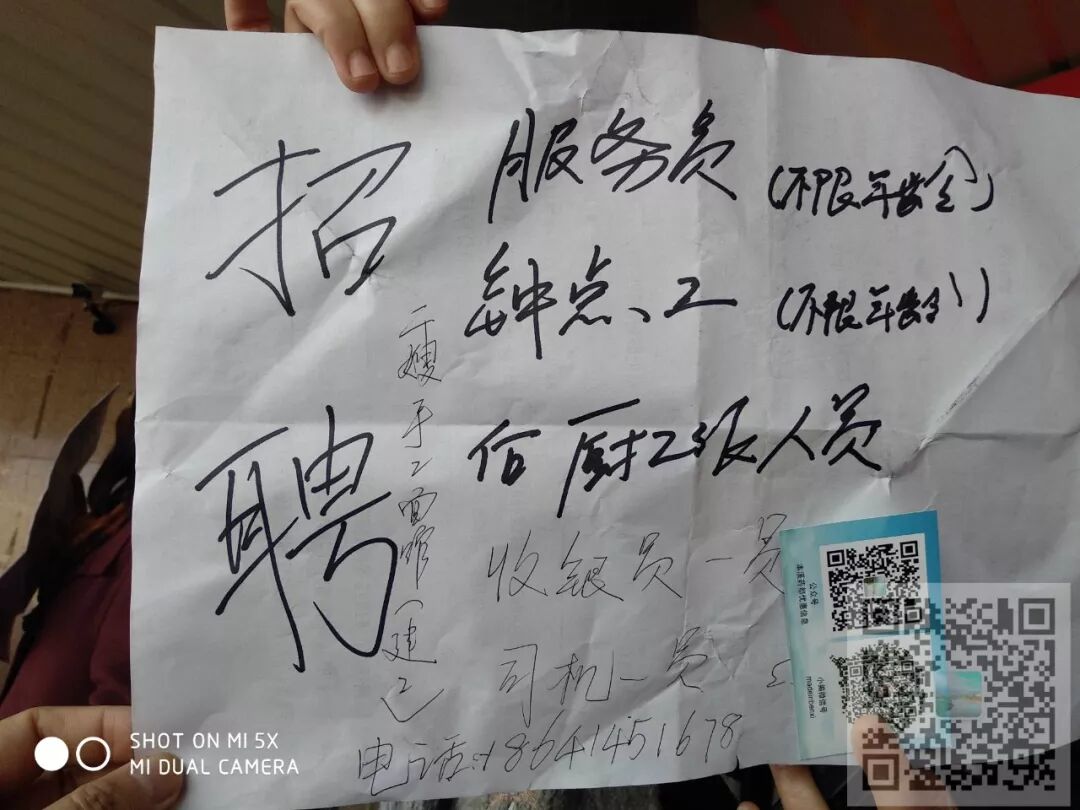 招聘
服务员(不限年龄)
钟点工(不限年龄)
后厨工作人员
收银员一员
司机一员
二嫂手工面馆
电话:18641451678
公众号
本溪药怪优惠信息
小编微信号
SHOT ON MI 5X
MI DUAL CAMERA